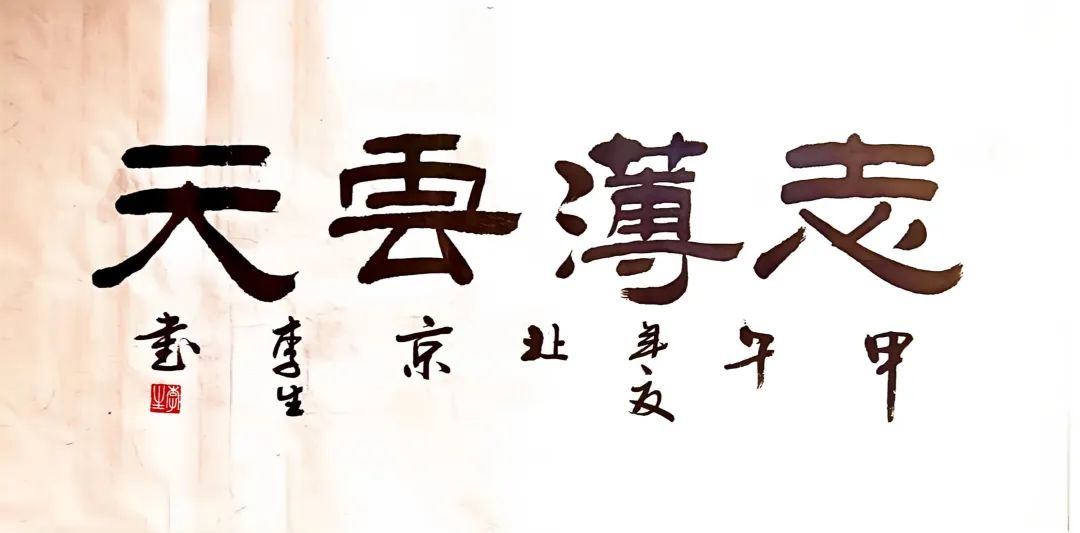 志薄雲天
甲午年夏北京李生書
李生